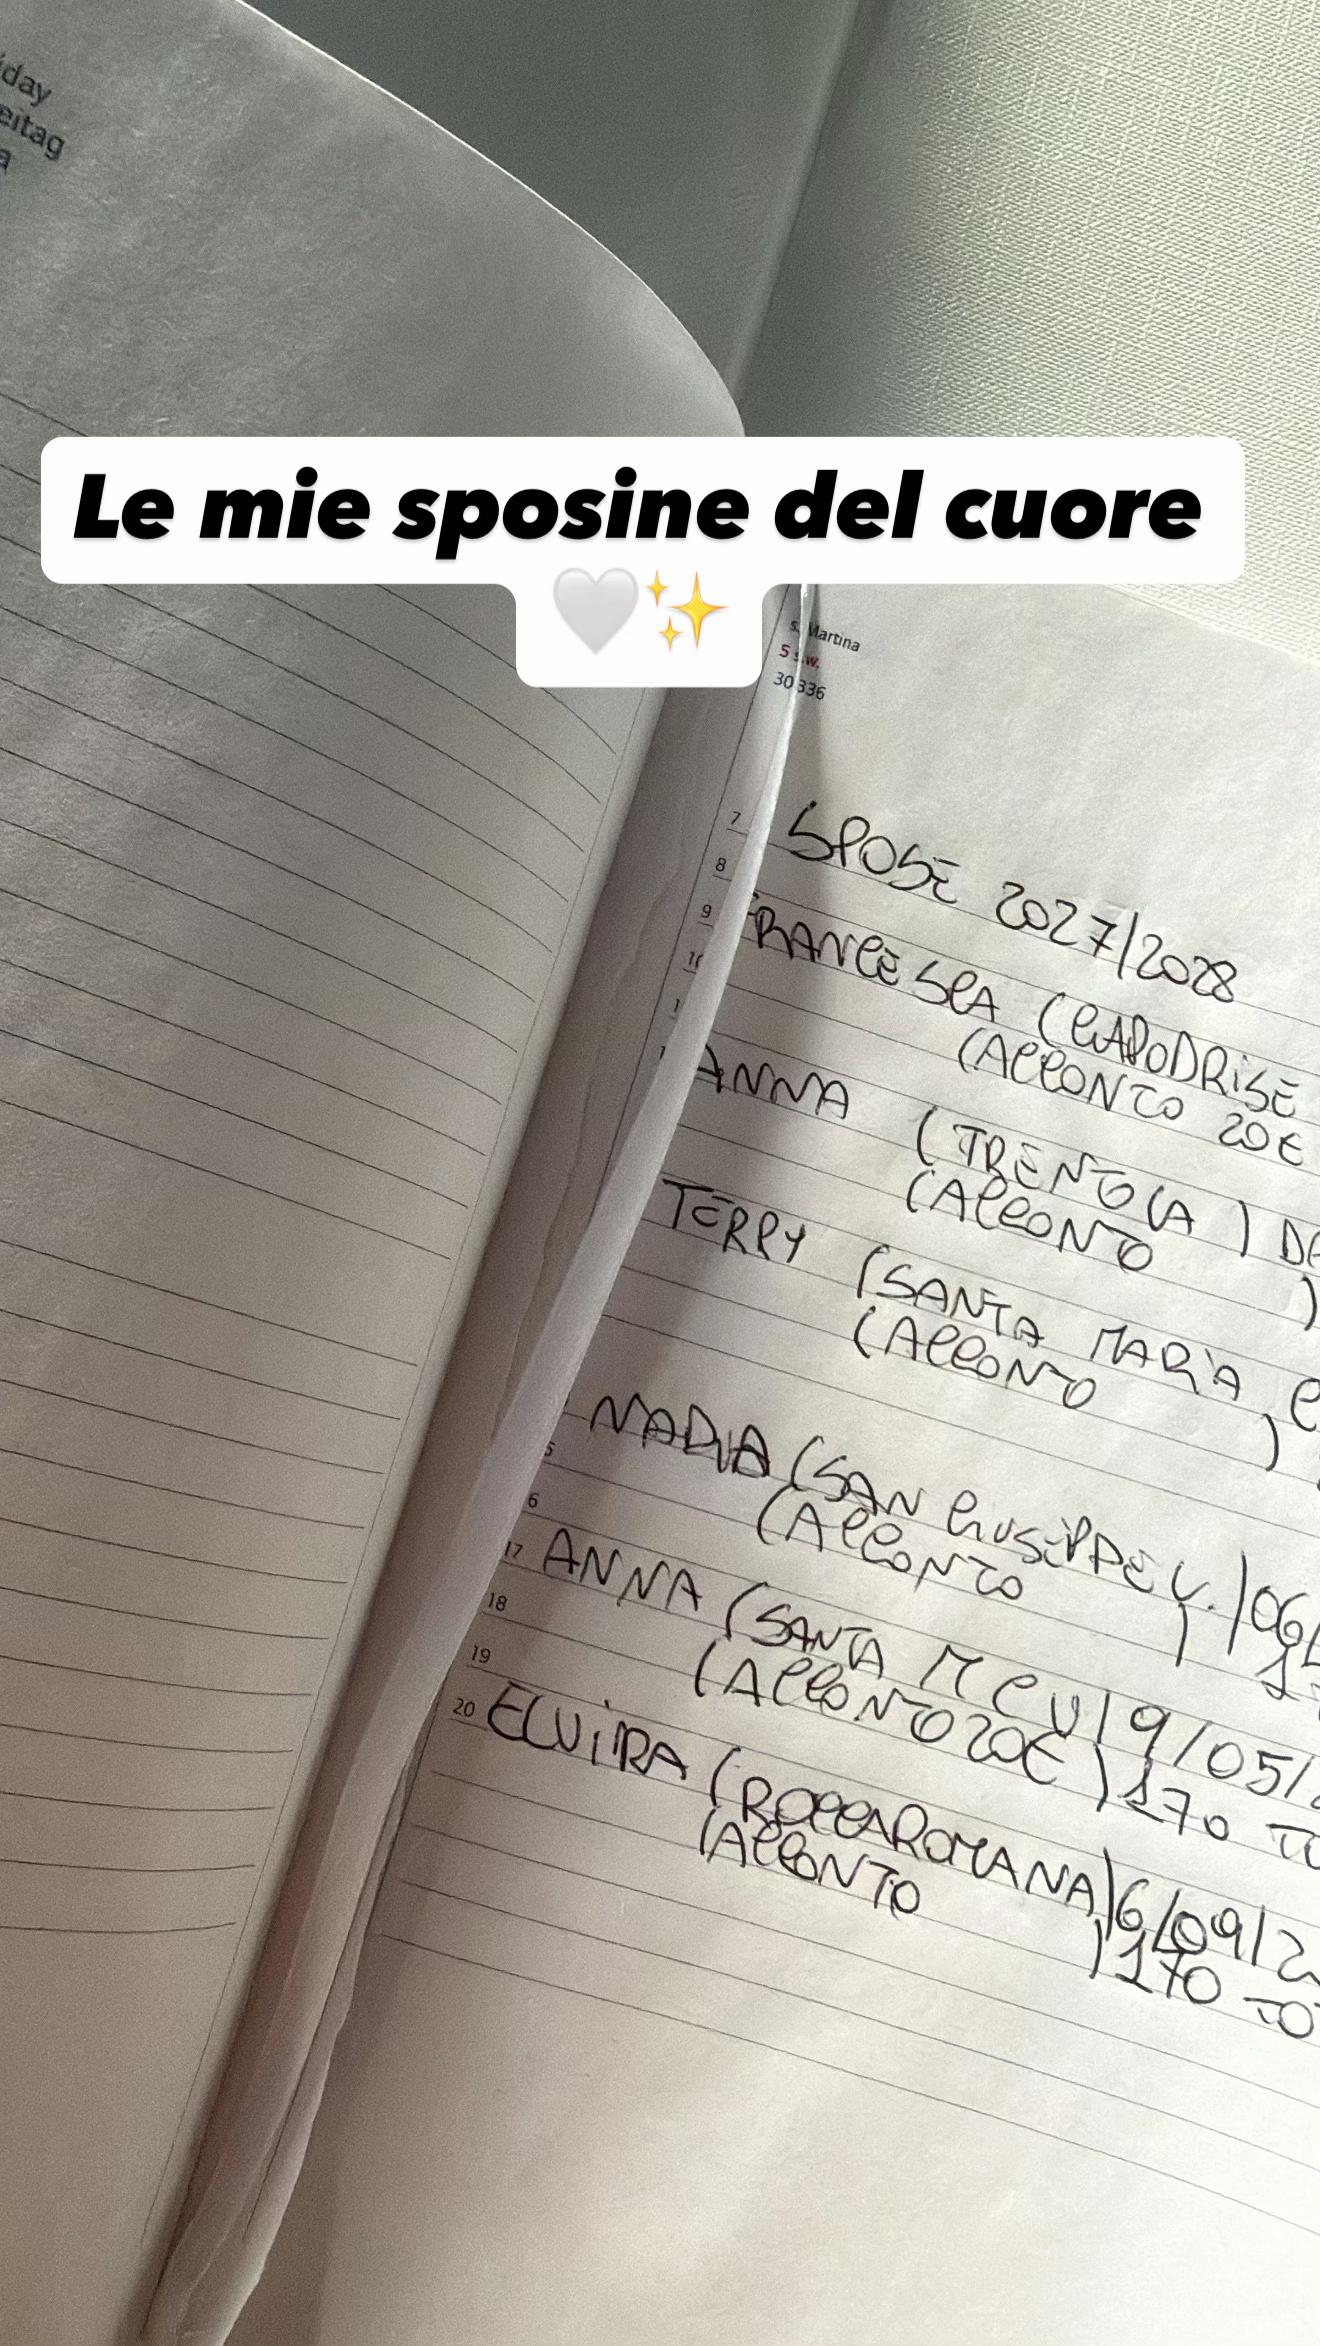 Le mie sposine del cuore
🤍✨
s. Martina
5 s.w.
30 336
7
SPOSE 2027/2028
8
9
FRANCESCA (CAPODRISE
(ACCONTO 20€
ANNA (TRENTOLA) DA
(ACCONTO )
TERRY (SANTA MARIA C
(ACCONTO )
NADIA (SAN GIUSEPPE V.)06/
(ACCONTO )
6
17
ANNA (SANTA M C V) 9/05/
(ACCONTO 20€) 170 TO
18
19
20
ELVIRA (ROCCAROMANA) 6/09/2
(ACCONTO ) 170 TOT